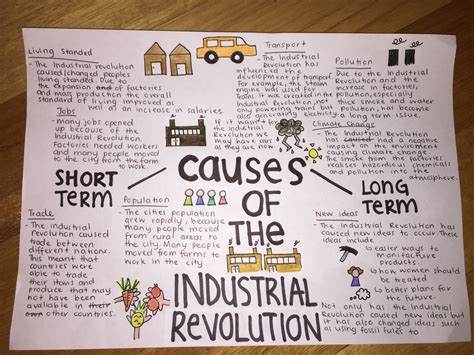 Living Standed
- The Industrial revolution
caused/changed peoples
living standed. Due to
the expansion and of factories
and mass production the overall
standard of living improved as
well as an increase in salaries.
Transport
- The Industrial
Revolution has
influenced the
development of transport.
For example, the steam
engine was used for
trains, it was created in the
Industrial Revolution not
only powering trains but
also generating electricity
If it wasn't for
the industrial
Revolution we
may have have
cars as they are
now.
Pollution
Due to the Industrial
Revolution and the
increase in factories,
pollution, especially
thick smoke and water
pollution, has become
a long term issue.
Jobs
- Many jobs opened
up because of the
Industrial Revolution.
Factories needed workers
and many people moved
to the city from the farm
to work.
Climate Change
- The Industrial Revolution
had a negative
impact on the environment
causing climate change.
The smoke from the factories
realises hazardous chemicals
and pollution into the
atmosphere.
CAUSES
OF
THE
INDUSTRIAL
REVOLUTION
SHORT
TERM
LONG
TERM
Population
- The cities population
grew rapidly, because
many people moved
from rural areas to
the city. Many people
moved from farms to
work in the city.
Trade
- The industrial
revolution caused
trade between
different nations.
This meant that
countries were
able to trade
their items and
produce that may
not have been
available in their
own other countries.
New ideas
- The Industrial Revolution has
caused new ideas to occur. These
ideas include
easier ways to
manufacture
products.
how women should
be treated
better plans for
the future.
Not only has the Industrial
Revolution caused new ideas but
it has also changed ideas such
as using fossil fules to